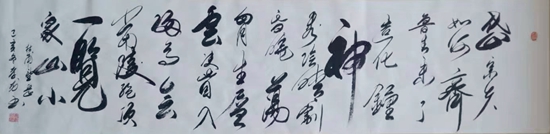 岱宗夫
如何齊
魯青未了
造化鐘
神
秀陰陽割
昏曉蕩
胸生層
雲決眥入
歸鳥會
當凌絕頂
一覽
眾山小